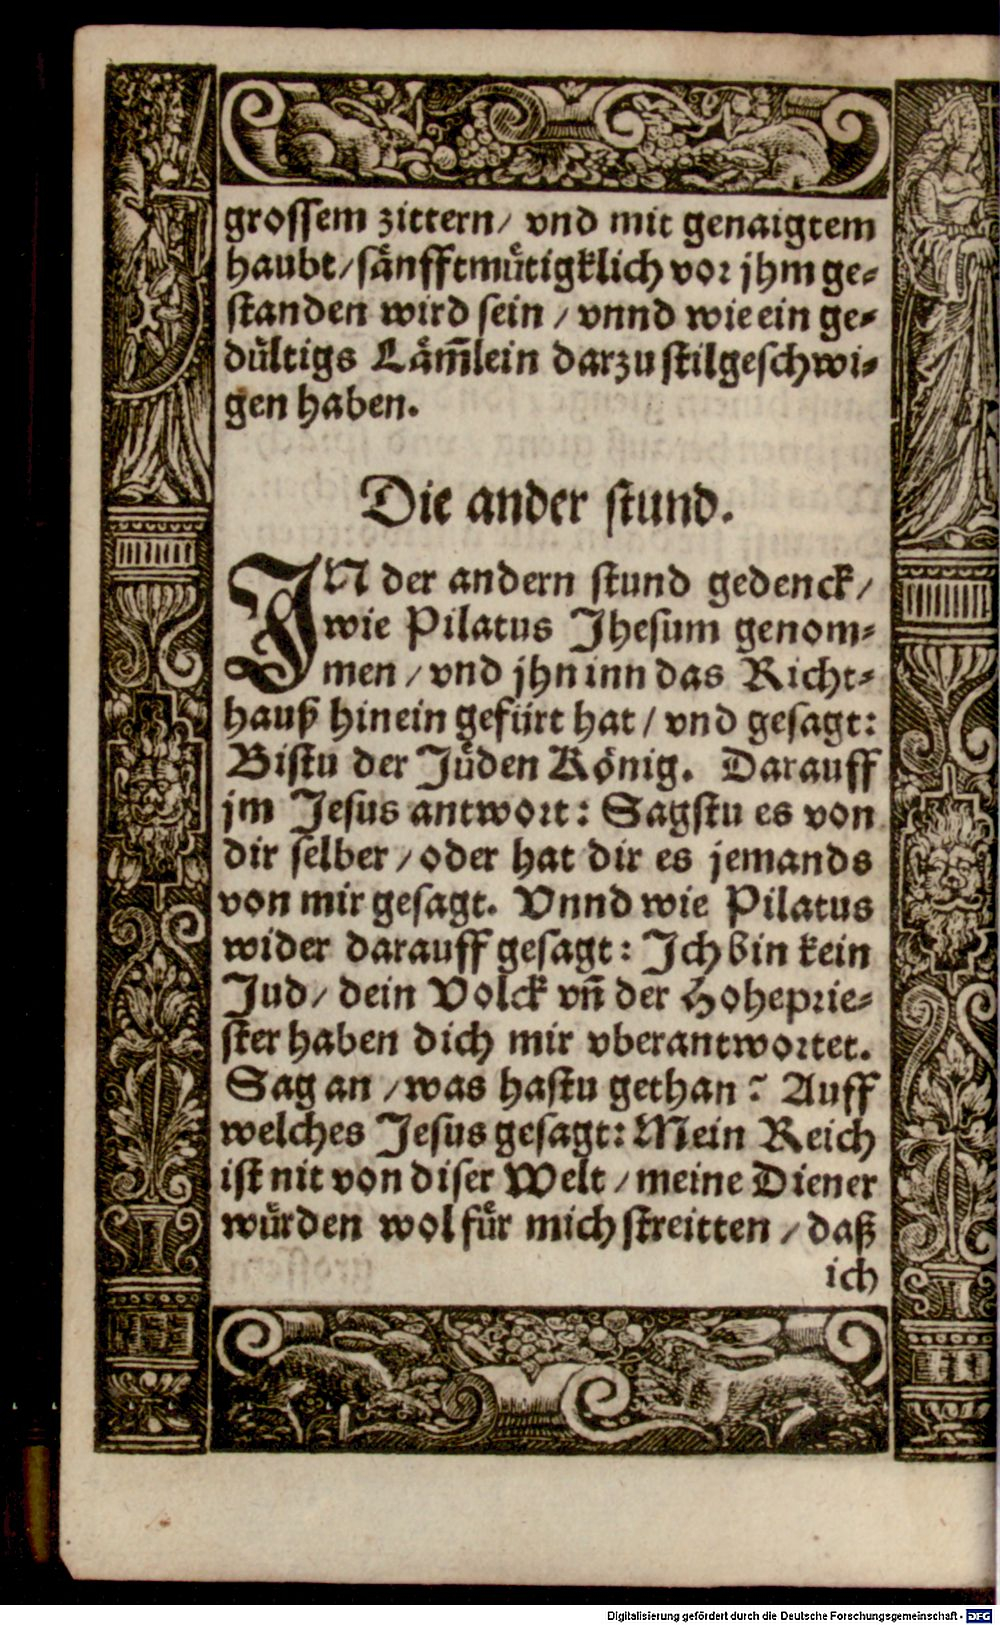 grossem zittern/ vnd mit genaigtem
haubt/sänfftmütigklich vor jhm ge-
standen wird sein / vnnd wie ein ge-
dültigs Läm̄lein darzu stilgeschwi-
gen haben.
Die ander stund.
IN der andern stund gedenck/
wie Pilatus Jhesum genom-
men / vnd jhn inn das Richt-
hauß hinein gefürt hat / vnd gesagt:
Bistu der Jüden König. Darauff
jm Jesus antwort: Sagstu es von
dir selber / oder hat dir es jemands
von mir gesagt. Vnnd wie Pilatus
wider darauff gesagt: Ich bin kein
Jud/ dein Volck vn̄ der Hoheprie-
ster haben dich mir vberantwortet.
Sag an / was hastu gethan? Auff
welches Jesus gesagt: Mein Reich
ist nit von diser Welt / meine Diener
würden wol für mich streitten / daß
ich
Digitalisierung gefördert durch die Deutsche Forschungsgemeinschaft - DFG